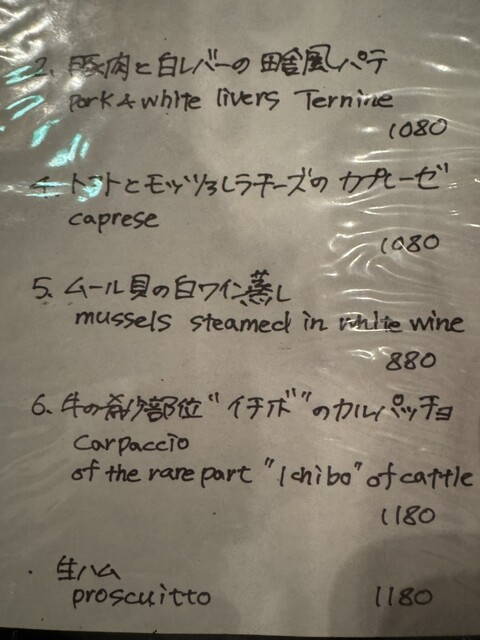 2. 豚肉と白レバーの田舎風パテ
pork & white livers Ternine
1080
4. トマトとモッツァレラチーズのカプレーゼ
caprese
1080
5. ムール貝の白ワイン蒸し
mussels steamed in white wine
880
6. 牛の希少部位"イチボ"のカルパッチョ
carpaccio
of the rare part "Ichibo" of cattle
1180
・生ハム
proscuitto 1180